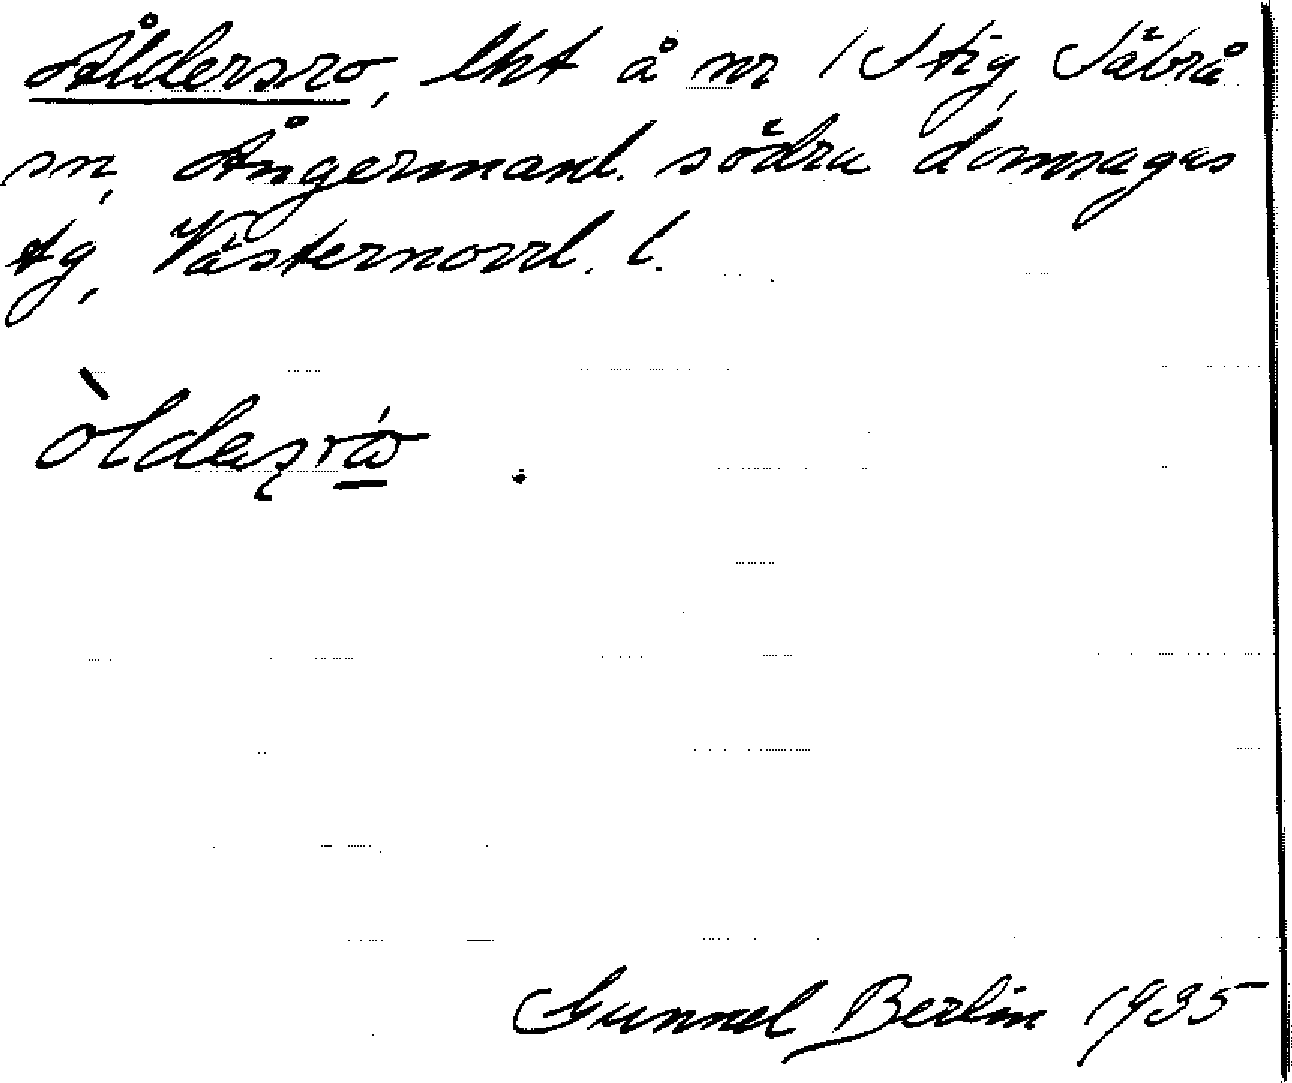 Åldersro, lht å nr 1 Stig, Säbrå
sn, Ångermanl. södra domsagas
tg, Västernorrl. l.
òldaʂró
Gunnel Berlin 1935